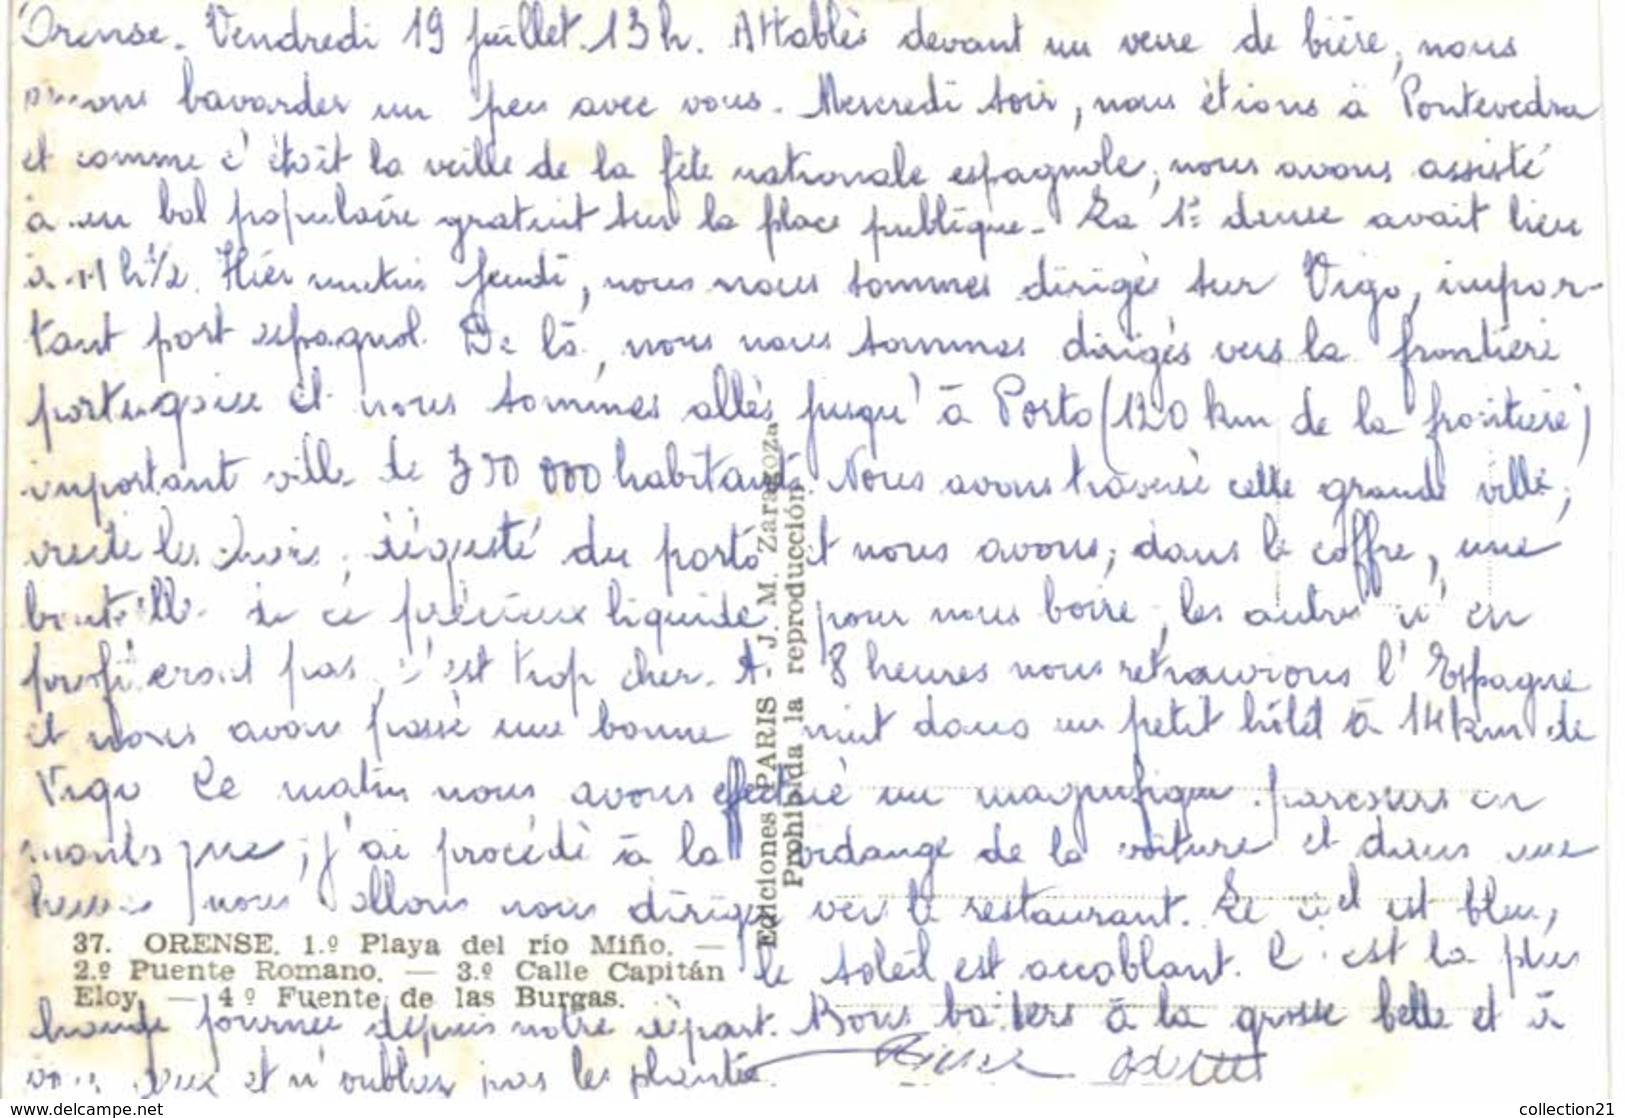 Orense. Vendredi 19 juillet. 13h. Attablés devant un verre de bière, nous
bavarder un peu avec vous. Mercredi soir, nous étions à Pontevedra
et comme c'était la veille de la fête nationale espagnole, nous avons assisté
à un bal populaire gratuit sur la place publique. La 1e danse avait lieu
à 11 h 1/2. Hier matin jeudi, nous nous sommes dirigés sur Vigo, impor-
tant port espagnol. De là, nous nous sommes dirigés vers la frontière
portugaise et nous sommes allés jusqu'à Porto (120 km de la frontière)
important ville de 350 000 habitants. Nous avons traversé cette grande ville,
visité les chais, dégusté du porto et nous avons, dans le coffre, une
bouteille de ce précieux liquide pour nous boire, les autres n'en
profiteront pas, c'est trop cher. A 8 heures nous retrouvions l'Espagne
et nous avons passé une bonne nuit dans un petit hôtel à 14 km de
Vigo Ce matin nous avons effectué un magnifique parcours en
j'ai procédé à la vidange de la voiture et dans une
heure nous allons nous diriger vers le restaurant. Le ciel est bleu,
le soleil est accablant. C'est la plus
chaude journée depuis notre départ. Bons baisers à la grosse belle et à
vous deux et n'oubliez pas les plantes.
Pierre Odette
37. ORENSE. 1.º Playa del río Miño. —
2.º Puente Romano. — 3.º Calle Capitán
Eloy. — 4º Fuente de las Burgas.
Ediciones PARIS - J. M. Zaragoza
Prohibida la reproducción
collection21